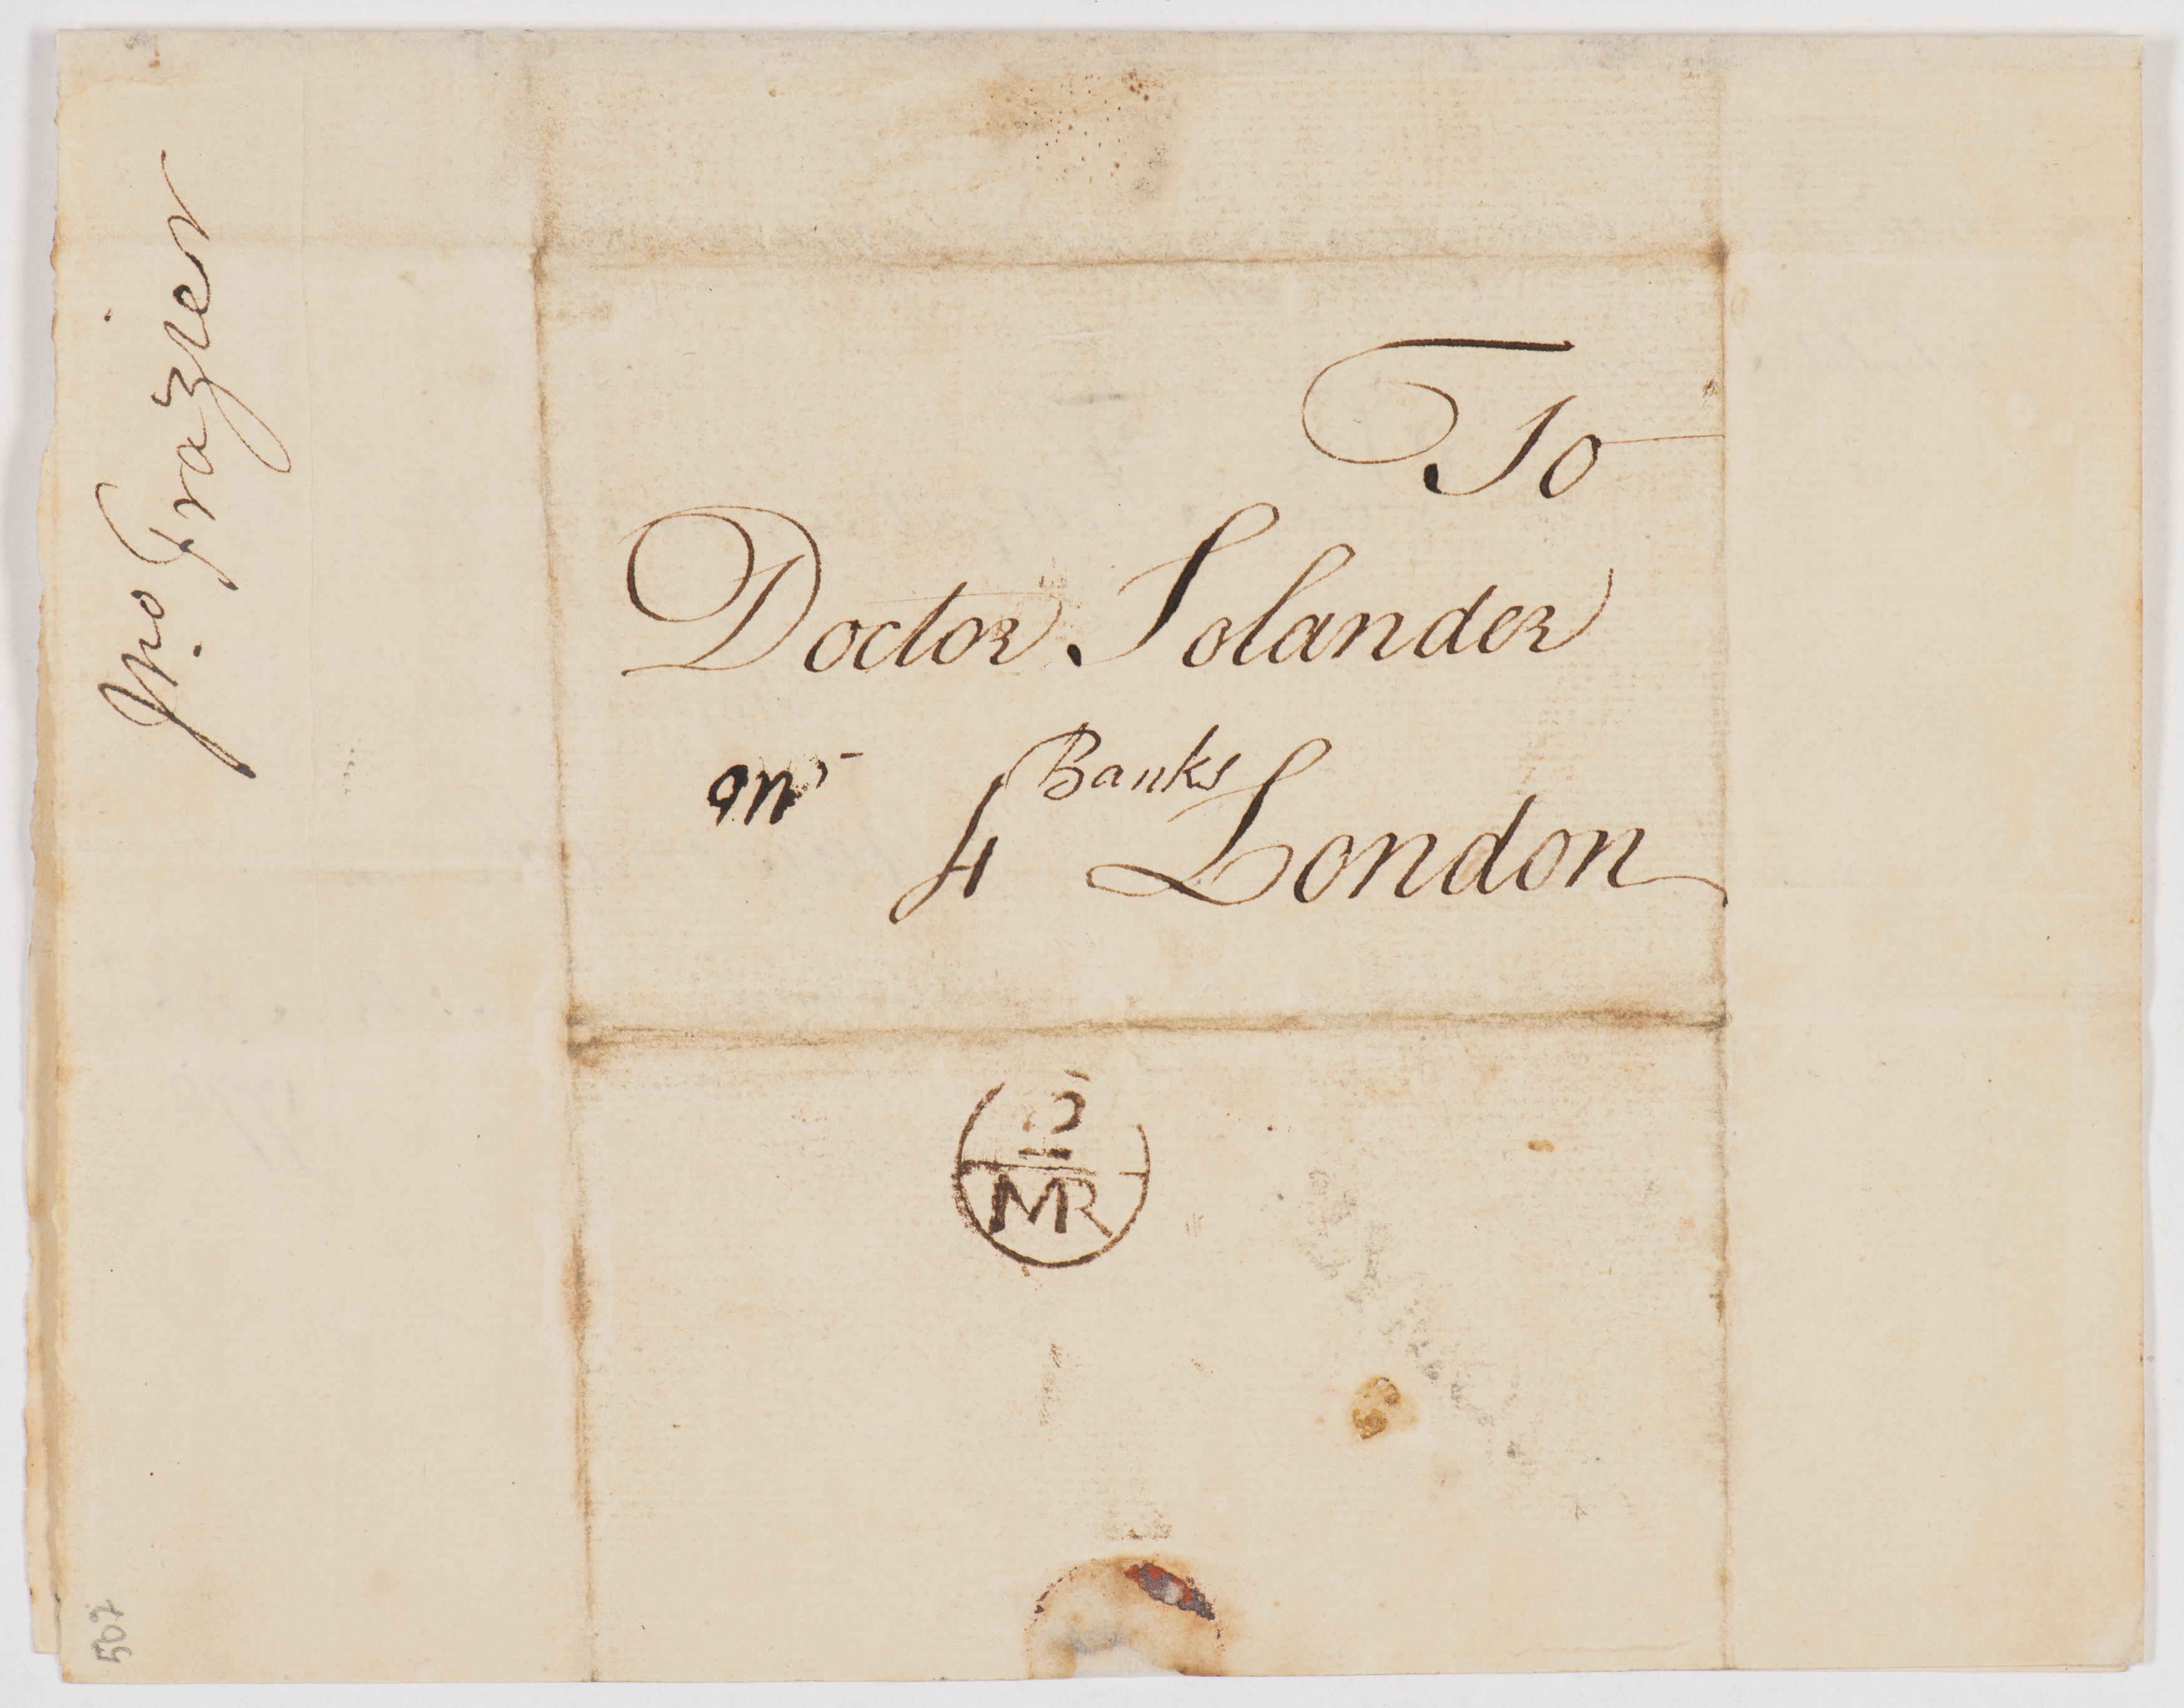 Jno. Frazier
To
Doctor Solander
Mr Banks
4 London
MR
507